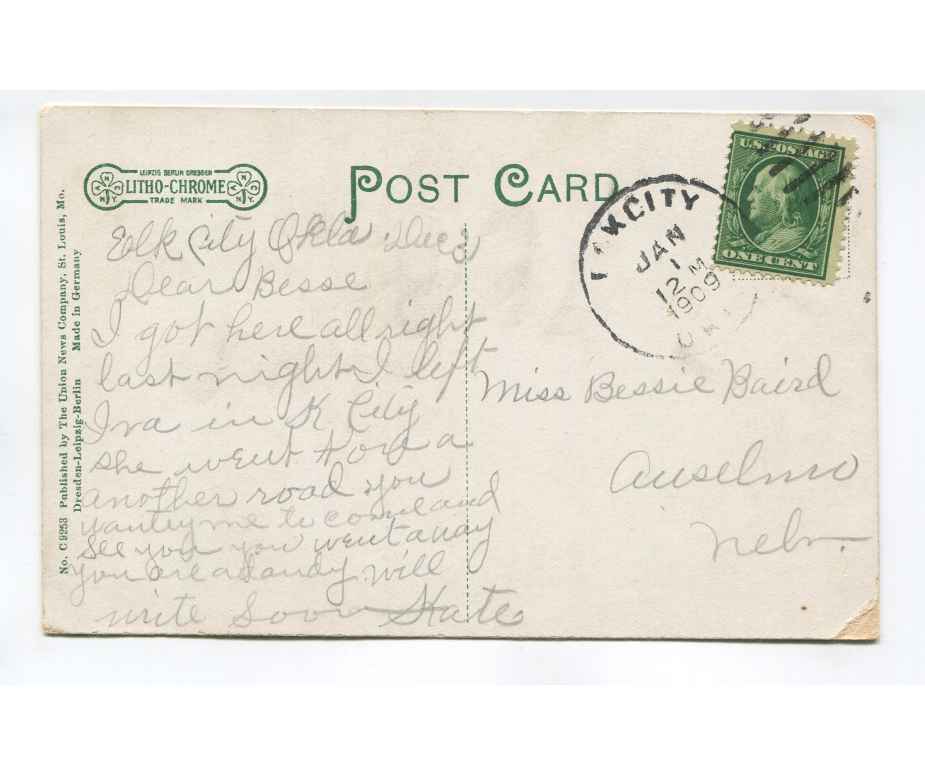 LEIPZIG BERLIN DRESDEN
LITHO-CHROME
TRADE MARK
N N
N.Y. N.Y.
POST CARD
No. C9253 Published by The Union News Company, St. Louis, Mo.
Dresden-Leipzig-Berlin Made in Germany
Elk City Okla Dec
Dear Besse
I got here all right
last night I left
Iva in K City
she went
another road you
me to come and
see you you went away
you are a dandy will
write soon
U.S. POSTAGE
ONE CENT
K CITY
JAN
1
12 M
1909
Miss Bessie Baird
Anselmo
Nebr.